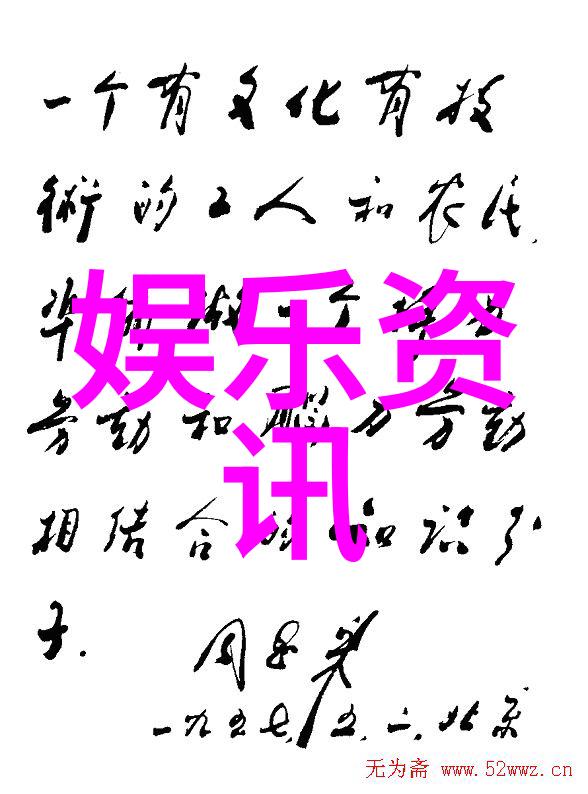 一个有文化有技
術的工人和农民,
準備做一个体力
劳动和脑力劳动
相结合的知识分
子.
周恩来
一九五七,五,二,北京
娱乐资
讯
无为斋 www.52wwz.cn